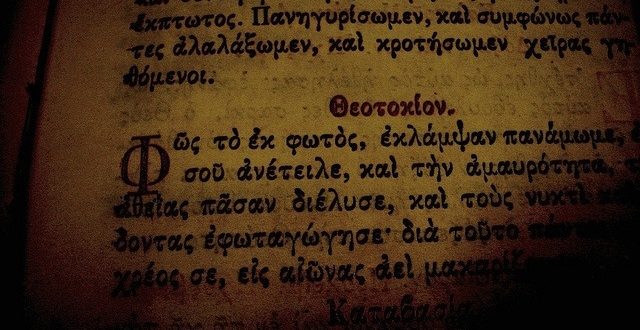 ἔκπτωτος. Πανηγυρίσωμεν, καὶ συμφώνως πάν-
τες ἀλαλάξωμεν, καὶ κροτήσωμεν χεῖρας γη-
θόμενοι.
Θεοτοκίον.
Φῶς τὸ ἐκ φωτὸς, ἐκλάμψαν πανάμωμε,
σοῦ ἀνέτειλε, καὶ τὴν ἀμαυρότητα,
ἀθεΐας πᾶσαν διέλυσε, καὶ τοὺς νυκτὶ
δοντας ἐφωταγώγησε· διὰ τοῦτο
χρέος σε, εἰς αἰῶνας ἀεὶ
Καταβασία